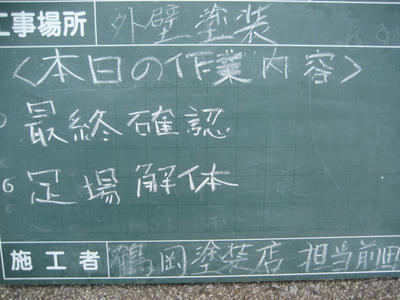 工事場所 外壁塗装
〈本日の作業内容〉
最終確認
6 足場解体
施工者 鶴岡塗装店 担当前田